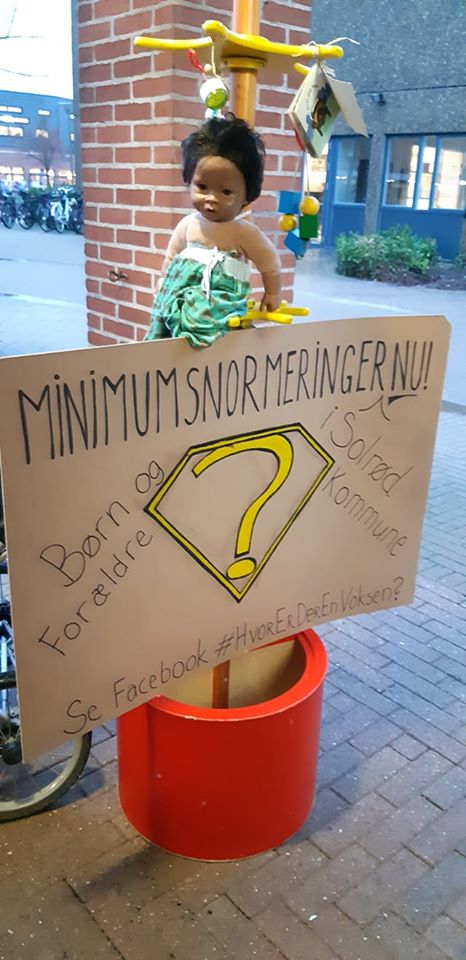 MINIMUMSNORMERINGER NU!
i Solrød
Kommune
Børn og
Forældre
?
Se Facebook #HvorErDerEnVoksen?